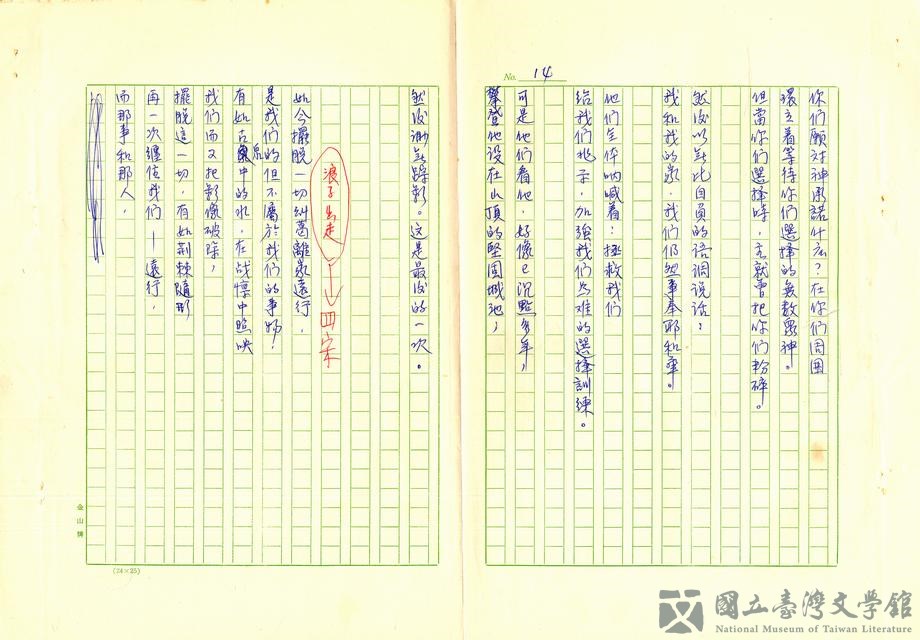 No. 14
你们願对神承諾什么？在你们周围
環立着等待你们選擇的無数衆神。
但當你们選擇時，它就會把你们粉碎。
然後以無比自負的语調说话：
我和我的家，我们仍然事奉耶和華。
他们全体吶喊着：拯救我们
给我们兆示，加強我们为难的選擇訓練。
可是他们看他，好像已沉默多年，
攀登他设在山頂的堅固城池，
然後渺無踪影。这是最後的一次。
浪子出走 四宋
如今擺脱一切糾葛離家遠行，
是我们的但不屬於我们的事物，
有如古泉中的水，在战慄中照映
我们而又把影像破除，
擺脱這一切，有如荊棘隨形
再一次纏住我们——遠行，
而那事和那人，
金山牌
(24×25)
國立臺灣文學館
National Museum of Taiwan Literature